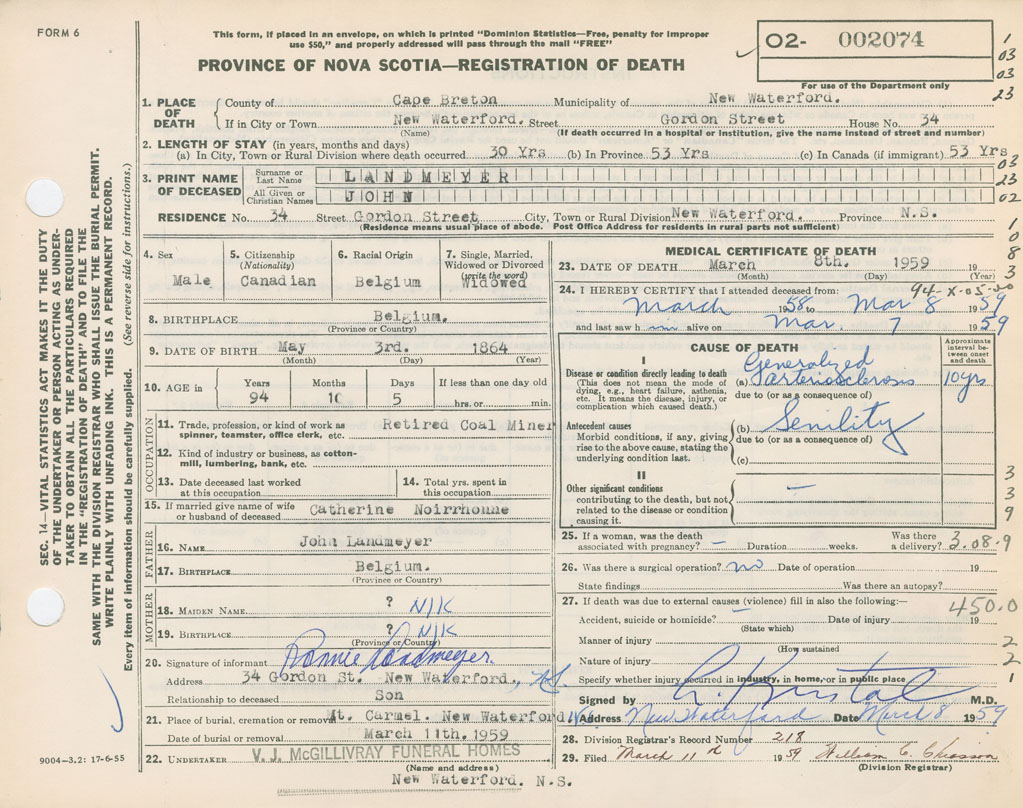 FORM 6
This form, if placed in an envelope, on which is printed "Dominion Statistics—Free, penalty for improper
use $50," and properly addressed will pass through the mail "FREE"
PROVINCE OF NOVA SCOTIA—REGISTRATION OF DEATH
02- 002074
For use of the Department only
1
03
03
23
1. PLACE OF DEATH
County of Cape Breton Municipality of New Waterford.
If in City or Town New Waterford. Street Gordon Street House No. 34
(Name) (If death occurred in a hospital or institution, give the name instead of street and number)
2. LENGTH OF STAY (in years, months and days)
(a) In City, Town or Rural Division where death occurred 30 Yrs (b) In Province 53 Yrs (c) In Canada (if immigrant) 53 Yrs
03
3. PRINT NAME OF DECEASED
Surname or Last Name LANDMEYER
23
All Given or Christian Names JOHN
02
RESIDENCE No. 34 Street Gordon Street City, Town or Rural Division New Waterford. Province N.S.
(Residence means usual place of abode. Post Office Address for residents in rural parts not sufficient)
1
0
8
3
4. Sex
Male
5. Citizenship
(Nationality)
Canadian
6. Racial Origin
Belgium
7. Single, Married,
Widowed or Divorced
(write the word)
Widowed
8. BIRTHPLACE Belgium.
(Province or Country)
9. DATE OF BIRTH May 3rd. 1864
(Month) (Day) (Year)
10. AGE in
Years Months Days If less than one day old
94 10 5 hrs. or min.
OCCUPATION
11. Trade, profession, or kind of work as Retired Coal Miner
spinner, teamster, office clerk, etc.
12. Kind of industry or business, as cotton-
mill, lumbering, bank, etc.
13. Date deceased last worked
at this occupation
14. Total yrs. spent in
this occupation
15. If married give name of wife
or husband of deceased Catherine Noirrhomme
FATHER
16. NAME John Landmeyer
17. BIRTHPLACE Belgium.
(Province or Country)
MOTHER
18. MAIDEN NAME ? N/K
19. BIRTHPLACE ? N/K
(Province or Country)
20. Signature of informant Ronnie Landmeyer
Address 34 Gordon St. New Waterford, N.S.
Relationship to deceased Son
21. Place of burial, cremation or removal Mt. Carmel. New Waterford
Date of burial or removal March 11th. 1959
22. UNDERTAKER V. J. McGILLIVRAY FUNERAL HOMES
(Name and address)
New Waterford, N.S.
MEDICAL CERTIFICATE OF DEATH
23. DATE OF DEATH March 8th. 1959 19
(Month) (Day) (Year)
94-X-05-00
24. I HEREBY CERTIFY that I attended deceased from:
March 1958 to Mar 8 1959
and last saw him alive on Mar. 7 1959
CAUSE OF DEATH
Approximate interval between onset and death
I
Disease or condition directly leading to death
(This does not mean the mode of
dying, e.g., heart failure, asthenia,
etc. It means the disease, injury, or
complication which caused death.)
(a) Generalized
arteriosclerosis 10 yrs
due to (or as a consequence of)
Antecedent causes
Morbid conditions, if any, giving
rise to the above cause, stating the
underlying condition last.
(b) Senility
due to (or as a consequence of)
(c)
II
Other significant conditions
contributing to the death, but not
related to the disease or condition
causing it.
—
3
3
9
25. If a woman, was the death
associated with pregnancy? — Duration weeks. Was there
a delivery?
3.08.9
26. Was there a surgical operation? no Date of operation 19
State findings Was there an autopsy?
27. If death was due to external causes (violence) fill in also the following:—
450.0
Accident, suicide or homicide? — Date of injury 19
(State which)
Manner of injury
(How sustained
2
Nature of injury
2
Specify whether injury occurred in industry, in home, or in public place
1
Signed by M.D.
Address New Waterford Date March 8 1959
28. Division Registrar's Record Number 218
29. Filed March 11th 1959 William E. Chiasson
(Division Registrar)
SEC. 14—VITAL STATISTICS ACT MAKES IT THE DUTY
OF THE UNDERTAKER OR PERSON ACTING AS UNDER-
TAKER TO OBTAIN ALL THE PARTICULARS REQUIRED
IN THE "REGISTRATION OF DEATH" AND TO FILE THE
SAME WITH THE DIVISION REGISTRAR WHO SHALL ISSUE THE BURIAL PERMIT.
WRITE PLAINLY WITH UNFADING INK. THIS IS A PERMANENT RECORD.
Every item of information should be carefully supplied. (See reverse side for instructions.)
9004—3.2: 17-6-55